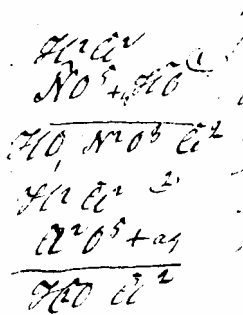 H² Cl²
NO⁵ + HO (1
HO, N²O³ Cl²
H² Cl² (2
Cl²O⁵ + aq
H2O Cl²